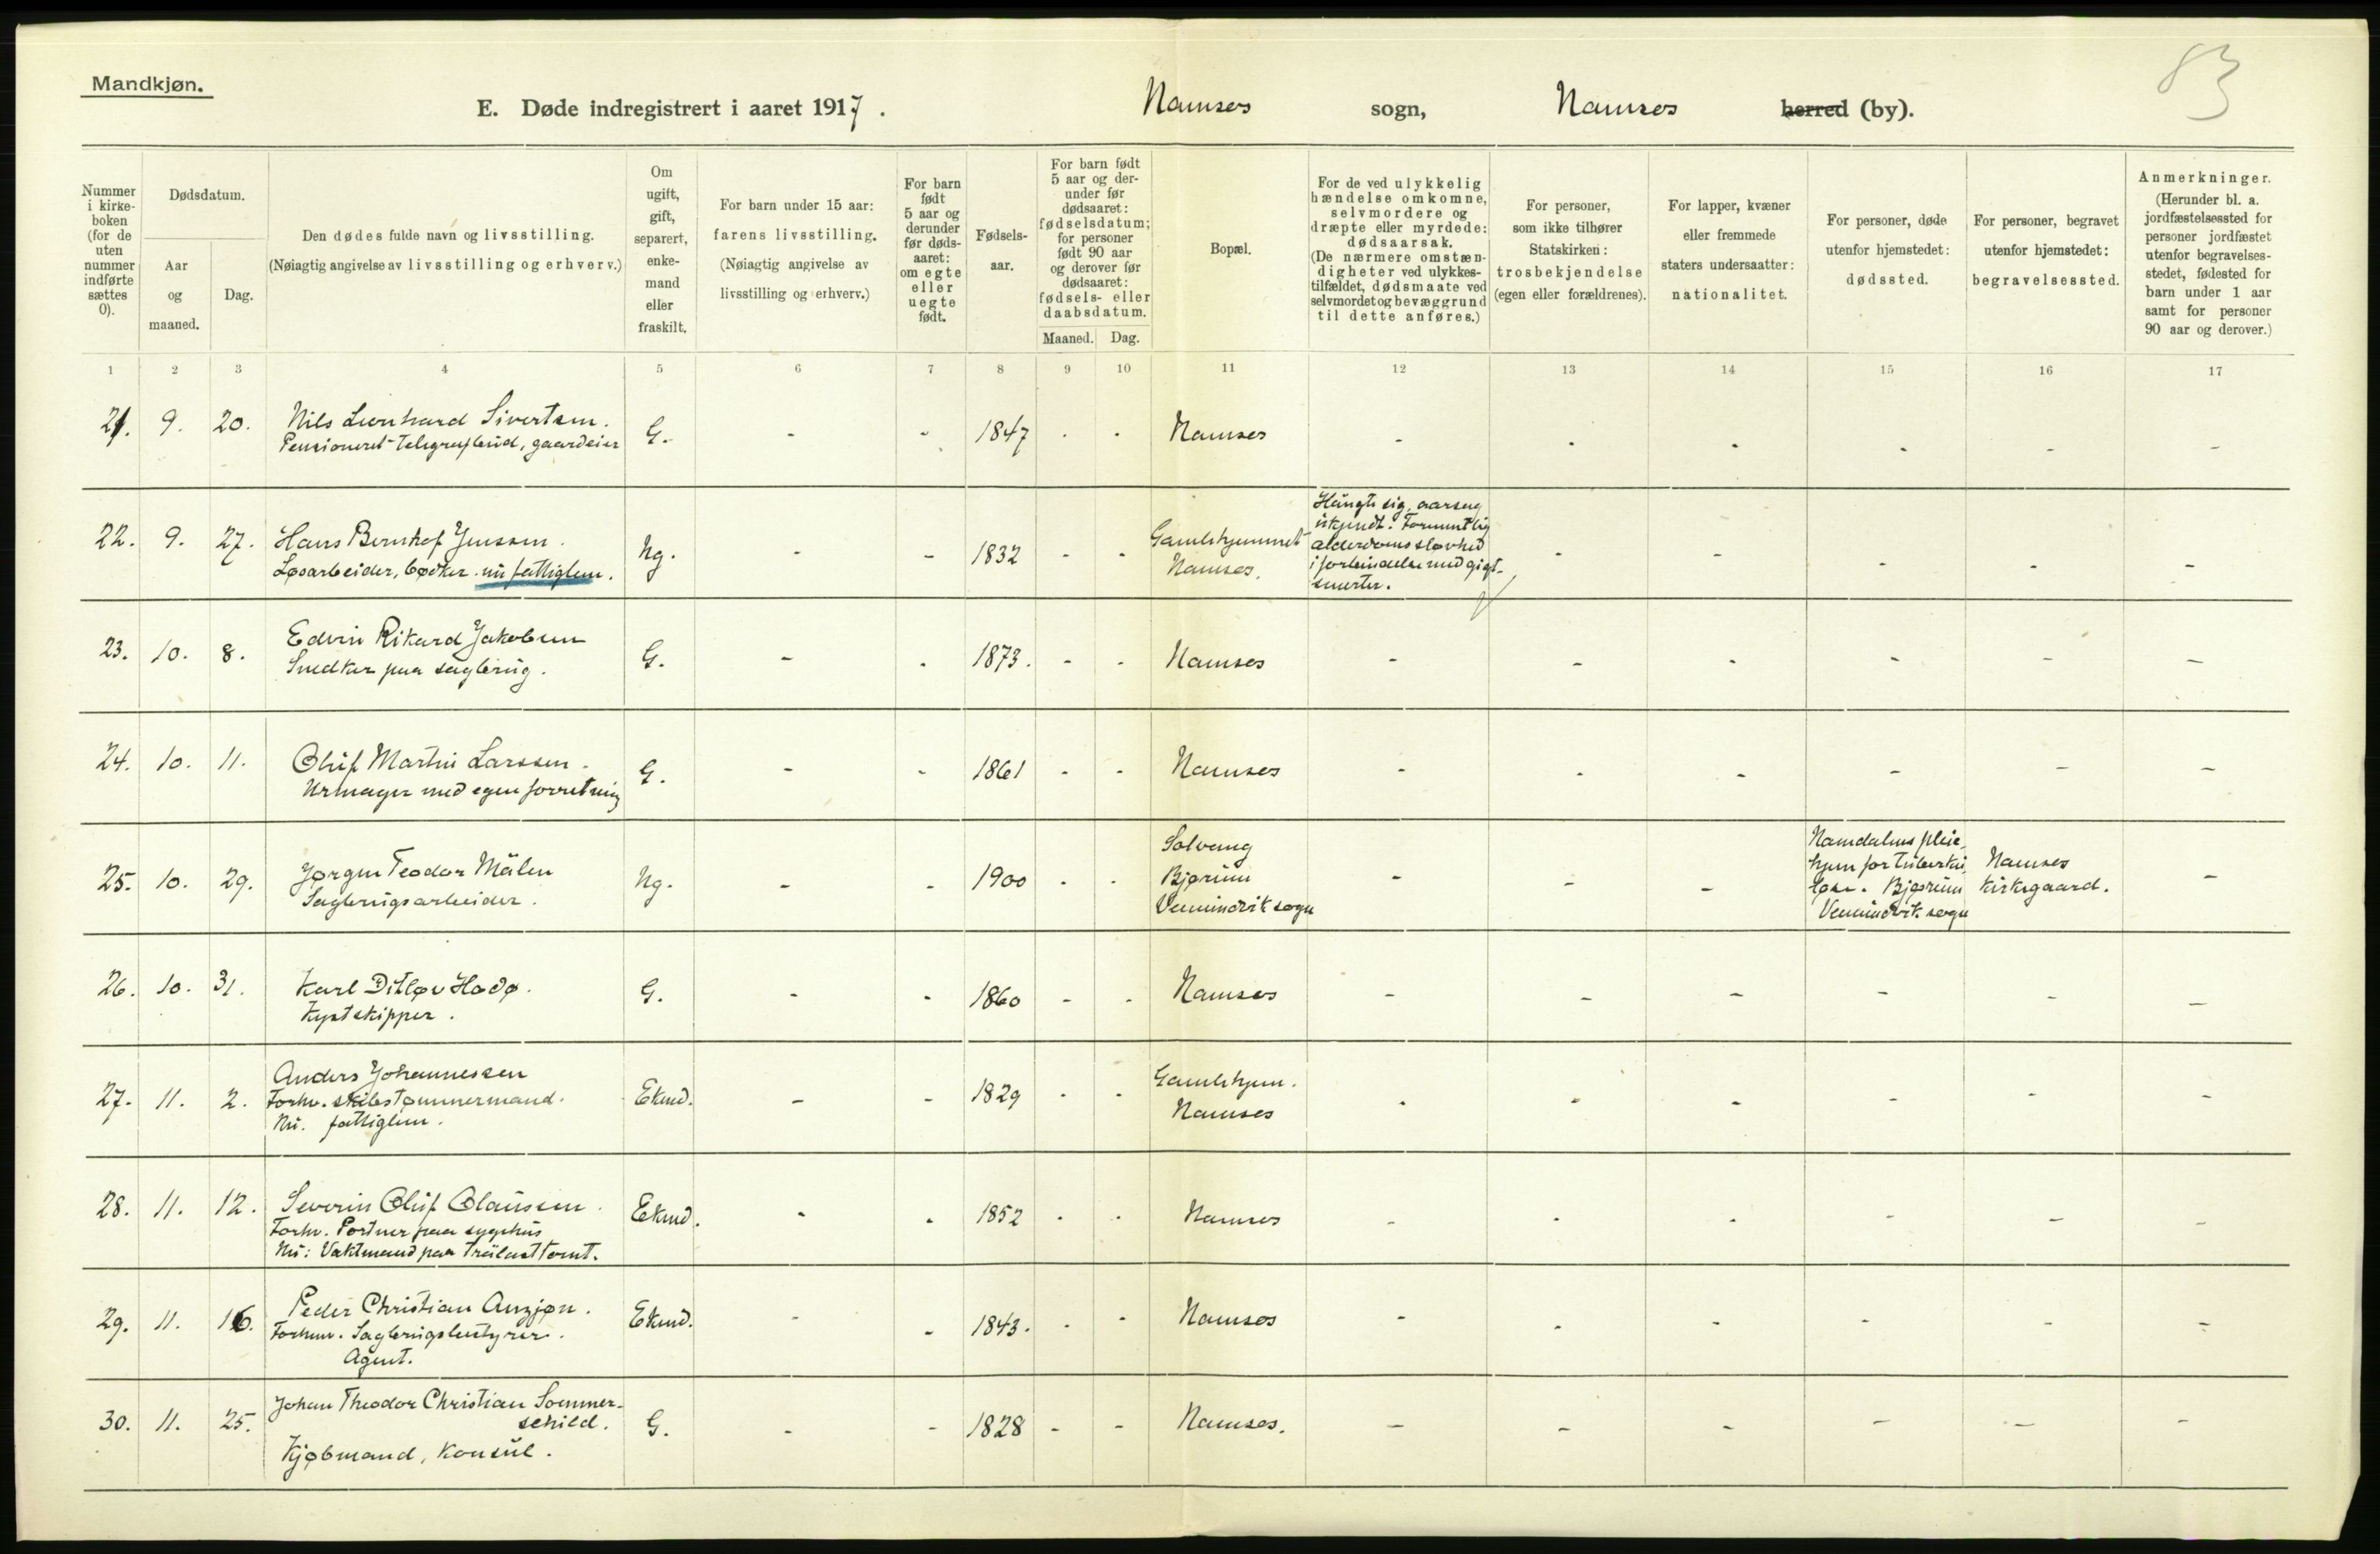 Mandkjøn.
83
E. Døde indregistrert i aaret 1917. Namsos sogn, Namsos herred (by).
Nummer i kirke- boken (for de uten nummer indførte sættes 0).
Dødsdatum.
Aar og maaned.
Dag.
Den dødes fulde navn og livsstilling.
(Nøiagtig angivelse av livsstilling og erhverv.)
Om ugift, gift, separert, enke- mand eller fraskilt.
For barn under 15 aar:
farens livsstilling.
(Nøiagtig angivelse av
livsstilling og erhverv.)
For barn født 5 aar og derunder før døds- aaret: om egte eller uegte født.
Fødsels- aar.
For barn født 5 aar og der- under før dødsaaret: fødselsdatum; for personer født 90 aar og derover før dødsaaret: fødsels- eller daabsdatum.
Maaned. Dag.
Bopæl.
For de ved ulykkelig hændelse omkomne, selvmordere og dræpte eller myrdede: dødsaarsak. (De nærmere omstæn- digheter ved ulykkes- tilfældet, dødsmaate ved selvmordet og bevæggrund til dette anføres.)
For personer, som ikke tilhører Statskirken: trosbekjendelse (egen eller forældrenes).
For lapper, kvæner eller fremmede staters undersaatter: nationalitet.
For personer, døde utenfor hjemstedet: dødssted.
For personer, begravet utenfor hjemstedet: begravelsessted.
Anmerkninger. (Herunder bl. a. jordfæstelsessted for personer jordfæstet utenfor begravelses- stedet, fødested for barn under 1 aar samt for personer 90 aar og derover.)
1 2 3 4 5 6 7 8 9 10 11 12 13 14 15 16 17
21. 9. 20. Nils Leonhard Sivertsen. G. - - 1847 - - Namsos - - - - - -
Pensioneret telegrafbud, gaardeier
22. 9. 27. Hans Bernhof Jenssen. Ug. - - 1832 - - Gamlehjemmet - - - - -
Løsarbeider, bødker. nu fattiglem. Namsos.
Hængte sig, aarsag
ukjendt. Formentlig
alderdomssløvhed
i forbindelse med gigt-
smerter.
23. 10. 8. Edvin Rikard Jakobsen G. - - 1873. - - Namsos - - - - - -
Snedker paa sagbrug.
24. 10. 11. Oluf Martin Larssen. G. - - 1861 - - Namsos - - - - - -
Urmager med egen forretning
25. 10. 29. Jørgen Teodor Mälen Ug. - - 1900 - - - - - -
Sagbrugsarbeider.
Solvang
Bjørum
Vemundvik sogn
Namdalens pleie-
hjem for tuberku-
løse. Bjørum
Vemundvik sogn
Namsos
Kirkegaard.
26. 10. 31. Karl Ditløv Hodø. G. - - 1860 - - Namsos - - - - - -
Kystskipper.
27. 11. 2. Anders Johannessen Ekmd. - - 1829 - - Gamlehjem. - - - - - -
Forhv. skibstømmermand. Namsos
Nu. fattiglem.
28. 11. 12. Severin Oluf Olaussen. Ekmd. - - 1852 - - Namsos - - - - - -
Forhv. Portner paa sygehus
Nu: Vaktmand paa trälasttomt.
29. 11. 16. Peder Christian Anzjøn. Ekmd. - - 1843. - - Namsos - - - - - -
Forhenv. Sagbrugsbestyrer.
Agent.
30. 11. 25. Johan Theodor Christian Sommer- G. - - 1828 - - Namsos. - - - - - -
schild.
Kjøbmand, Konsul.